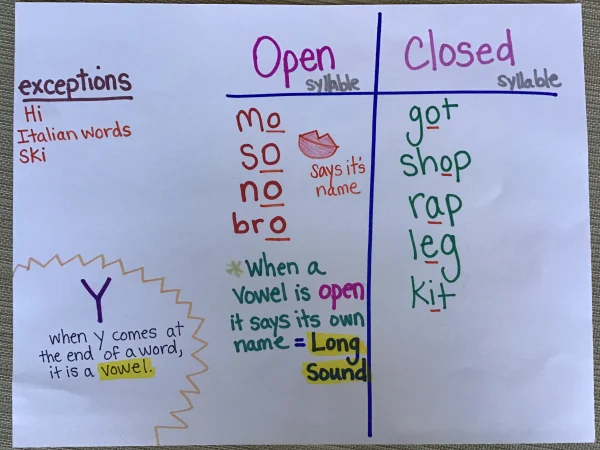 exceptions
Hi
Italian words
Ski
Open
syllable
mo
so
no
bro
says it's
name
*When a
vowel is open
it says its own
name = Long
Sound
Closed
syllable
got
shop
rap
leg
kit
Y
when y comes at
the end of a word,
it is a vowel.